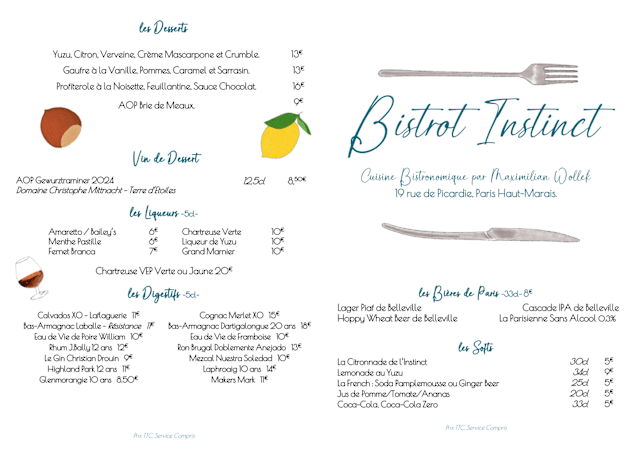 les Desserts
Yuzu, Citron, Verveine, Crème Mascarpone et Crumble. 13€
Gaufre à la Vanille, Pommes, Caramel et Sarrasin. 13€
Profiterole à la Noisette, Feuillantine, Sauce Chocolat. 16€
AOP Brie de Meaux. 9€
Vin de Dessert
AOP Gewurztraminer 2024 12.5cl 8,50€
Domaine Christophe Mittnacht - Terre d'Etoiles
les Liqueurs -5cl-
Amaretto / Bailey's 6€ Chartreuse Verte 10€
Menthe Pastille 6€ Liqueur de Yuzu 10€
Fernet Branca 7€ Grand Marnier 10€
Chartreuse VEP Verte ou Jaune 20€
les Digestifs -5cl-
Calvados XO - Laflaguerie 11€ Cognac Merlet XO 15€
Bas-Armagnac Laballe - Résistance 11€ Bas-Armagnac Dartigalongue 20 ans 18€
Eau de Vie de Poire William 10€ Eau de Vie de Framboise 10€
Rhum J.Bally 12 ans 12€ Ron Brugal Doblemente Anejado 13€
Le Gin Christian Drouin 9€ Mezcal Nuestra Soledad 10€
Highland Park 12 ans 11€ Laphroaig 10 ans 14€
Glenmorangie 10 ans 8.50€ Makers Mark 11€
Prix TTC. Service Compris
Bistrot Instinct
Cuisine Bistronomique par Maximilian Wollek
19 rue de Picardie, Paris Haut-Marais.
les Bières de Paris -33cl- 8€
Lager Piaf de Belleville Cascade IPA de Belleville
Hoppy Wheat Beer de Belleville La Parisienne Sans Alcool 0,3%
les Softs
La Citronnade de l'Instinct 30cl 5€
Lemonade au Yuzu 34cl 9€
La French : Soda Pamplemousse ou Ginger Beer 25cl 5€
Jus de Pomme/Tomate/Ananas 20cl 5€
Coca-Cola, Coca-Cola Zero 33cl 5€
Prix TTC. Service Compris